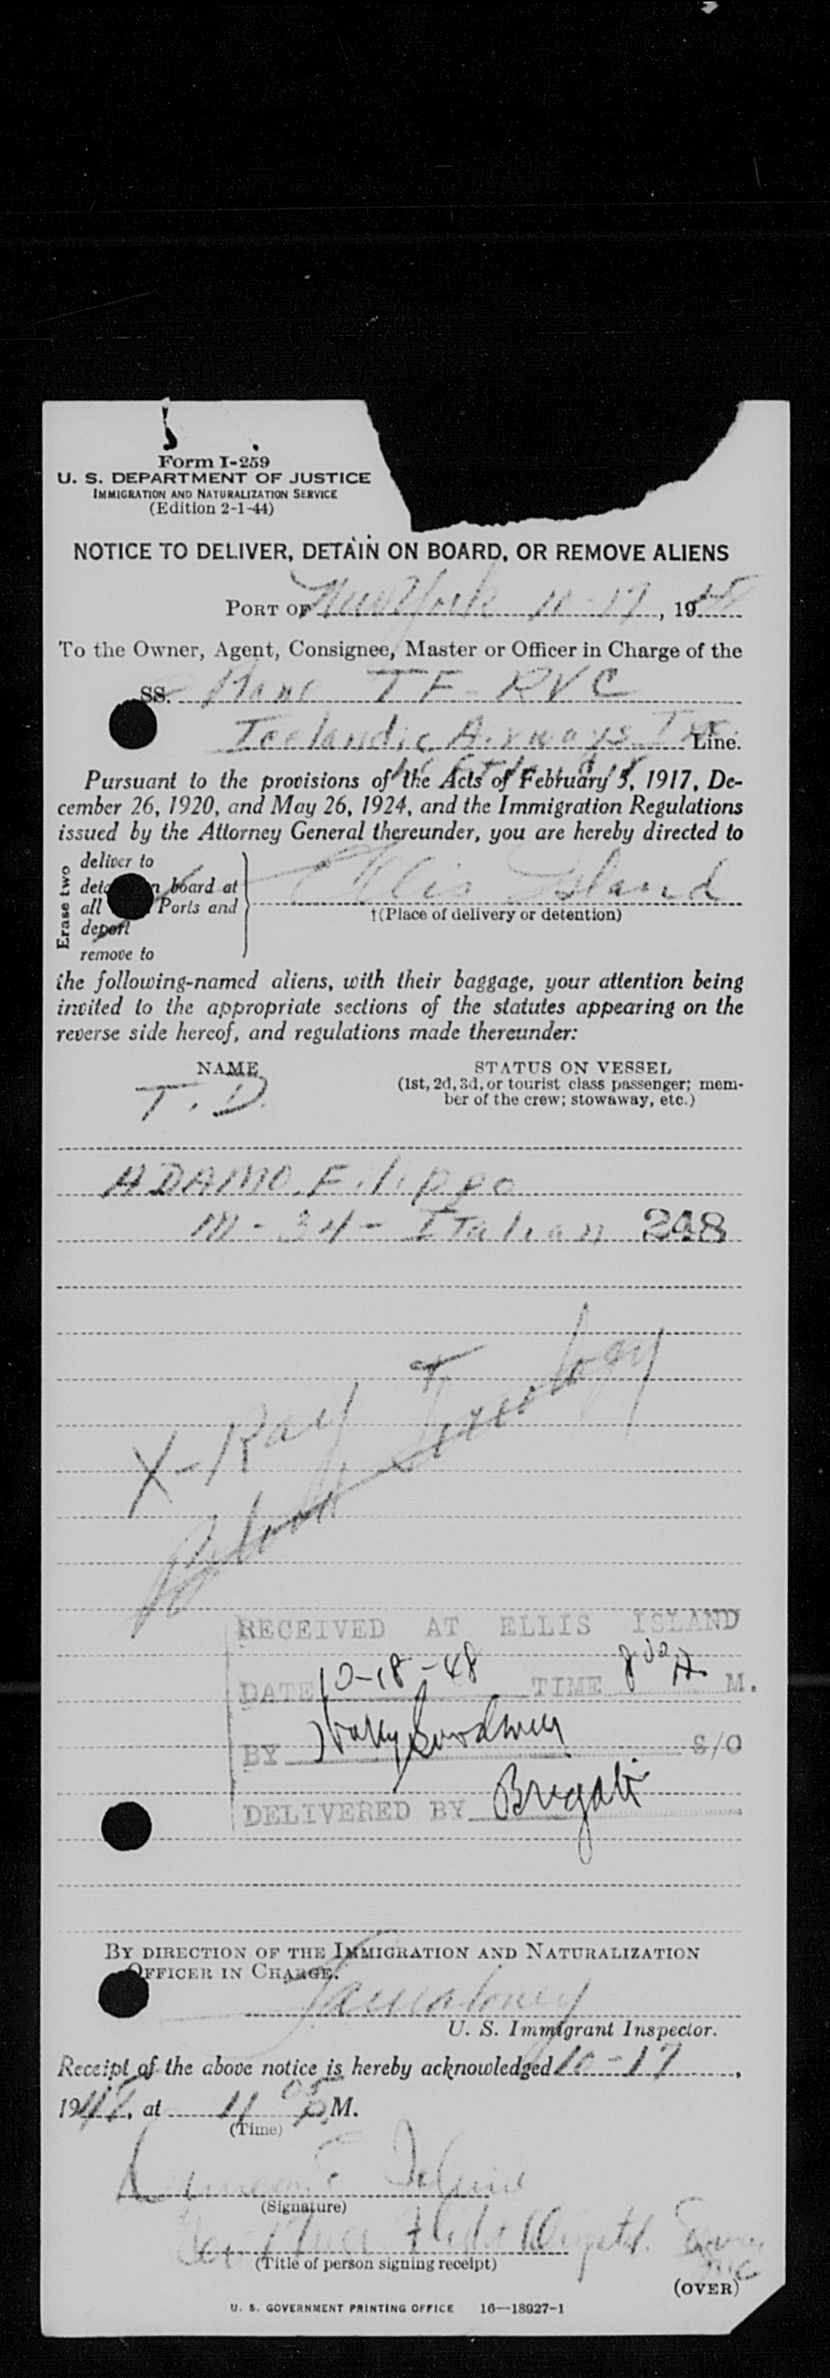 Form I-259
U. S. DEPARTMENT OF JUSTICE
IMMIGRATION AND NATURALIZATION SERVICE
(Edition 2-1-44)
NOTICE TO DELIVER, DETAIN ON BOARD, OR REMOVE ALIENS
PORT OF New York 10-17, 1948
To the Owner, Agent, Consignee, Master or Officer in Charge of the
SS. Plane TF-RVC
Icelandic Airways Inc Line.
Pursuant to the provisions of the Acts of February 5, 1917, De-
cember 26, 1920, and May 26, 1924, and the Immigration Regulations
issued by the Attorney General thereunder, you are hereby directed to
Erase two
deliver to
board at
all Ports and
deport
remove to
Ellis Island
†(Place of delivery or detention)
the following-named aliens, with their baggage, your attention being
invited to the appropriate sections of the statutes appearing on the
reverse side hereof, and regulations made thereunder:
NAME
STATUS ON VESSEL
(1st, 2d, 3d, or tourist class passenger; mem-
ber of the crew; stowaway, etc.)
T.D.
ADAMO, Filippo
M-34-Italian 248
X-Ray
Blood
RECEIVED AT ELLIS ISLAND
DATE 10-18-48 TIME A. M.
BY Harry Goodwin S/O
DELIVERED BY
BY DIRECTION OF THE IMMIGRATION AND NATURALIZATION
OFFICER IN CHARGE.
U. S. Immigrant Inspector.
Receipt of the above notice is hereby acknowledged 10-17,
1948, at 11 05 P.M.
(Time)
(Signature)
(Title of person signing receipt)
(OVER)
U. S. GOVERNMENT PRINTING OFFICE 16—18927-1